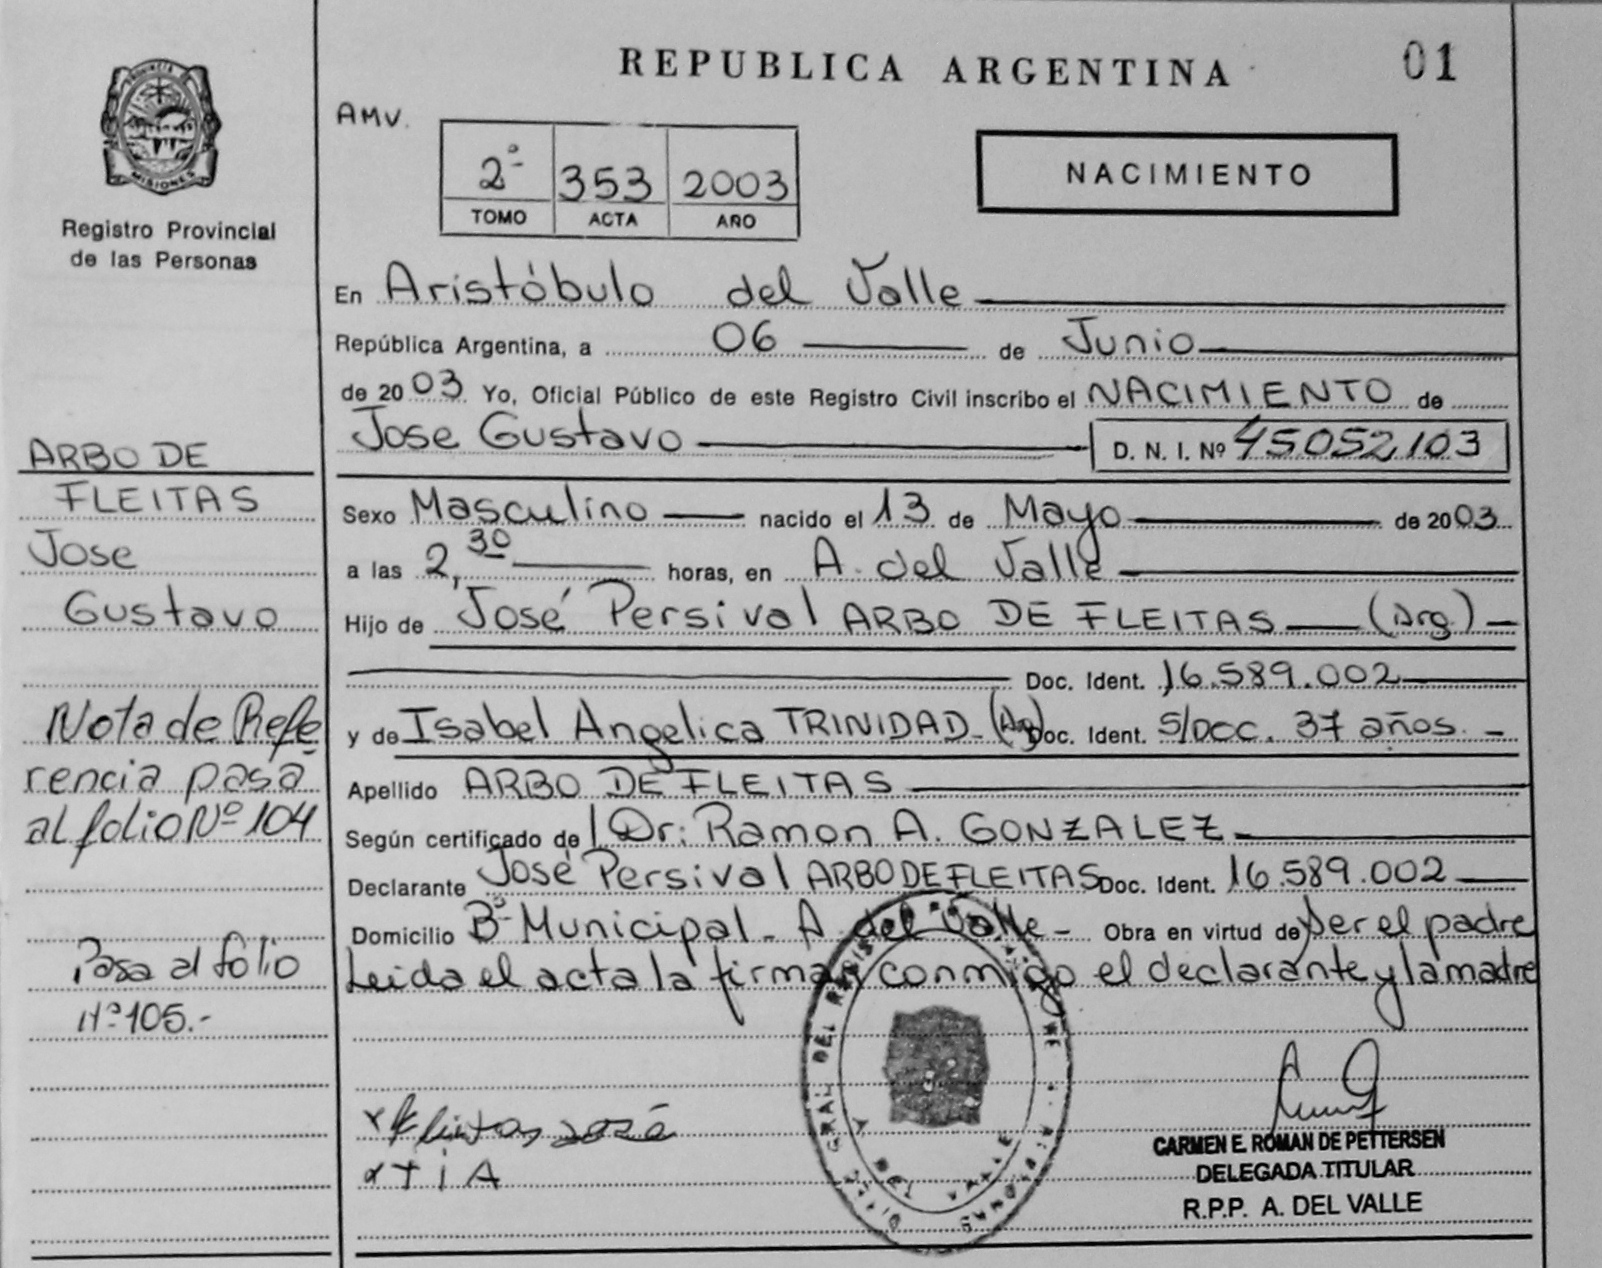 REPUBLICA ARGENTINA
01
PROVINCIA DE
MISIONES
Registro Provincial
de las Personas
AMV.
2º 353 2003
TOMO ACTA AÑO
NACIMIENTO
En Aristóbulo del Valle
República Argentina, a 06 de Junio
de 2003 Yo, Oficial Público de este Registro Civil inscribo el NACIMIENTO de
Jose Gustavo D. N. I. Nº 45052103
Sexo Masculino nacido el 13 de Mayo de 2003
a las 2,30 horas, en A. del Valle
Hijo de José Persival ARBO DE FLEITAS (Arg.)
Doc. Ident. 16.589.002
y de Isabel Angelica TRINIDAD - (Arg) Doc. Ident. S/DOC. 37 años. -
Apellido ARBO DE FLEITAS
Según certificado de l Dr: Ramon A. GONZALEZ
Declarante José Persival ARBO DE FLEITAS Doc. Ident. 16.589.002
Domicilio Bº Municipal - A. del Valle - Obra en virtud de ser el padre
Leida el acta la firman conmigo el declarante y la madre
ARBO DE
FLEITAS
Jose
Gustavo
Nota de Refe
rencia pasa
al folio Nº 104
Pasa al folio
Nº 105.-
Fleitas José
x T i A
A. DEL VALLE
CARMEN E. ROMAN DE PETTERSEN
DELEGADA TITULAR
R.P.P. A. DEL VALLE